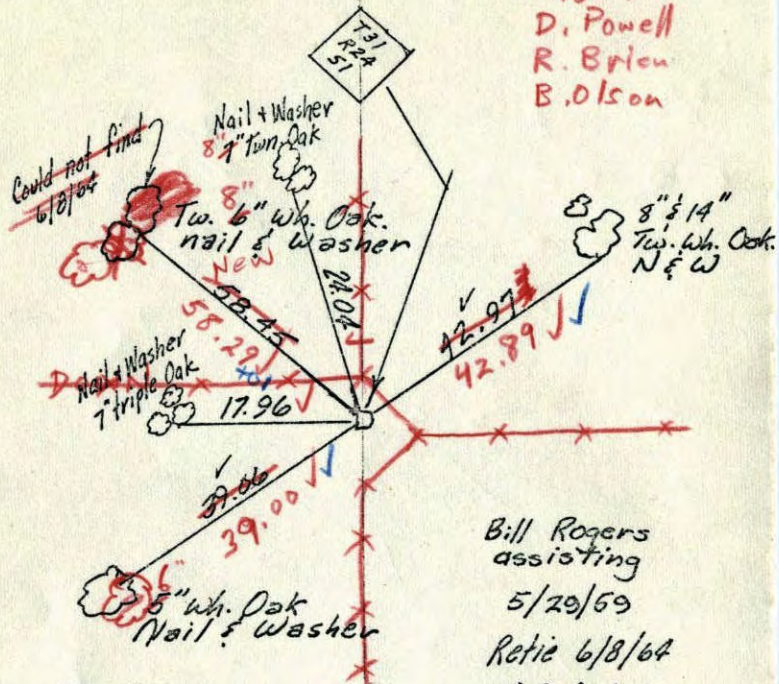 D. Powell
R. Brien
B. Olson
T31
R24
S1
Nail + Washer
8" 7" Twn. Oak
Could not find
6/8/64
8"
Tw. 6" Wh. Oak.
nail & Washer
New
58.45
58.29
24.04
8" & 14"
Tw. Wh. Oak.
N & W
42.97
42.89
Nail + Washer
7" triple Oak
17.96
39.06
39.00
6"
5" Wh. Oak
Nail & Washer
Bill Rogers
assisting
5/29/59
Retie 6/8/64